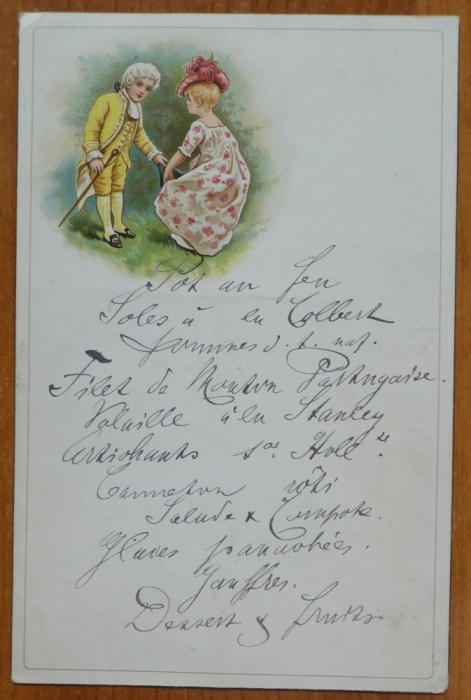 Pot au feu
Soles à la Colbert
Pommes d. t. nat.
Filet de Mouton Portugaise.
Volaille à la Stanley
Artichauts sce Holl.se
Canneton rôti
Salade & Compote.
Glaces panachées.
Gauffres.
Dessert & fruits